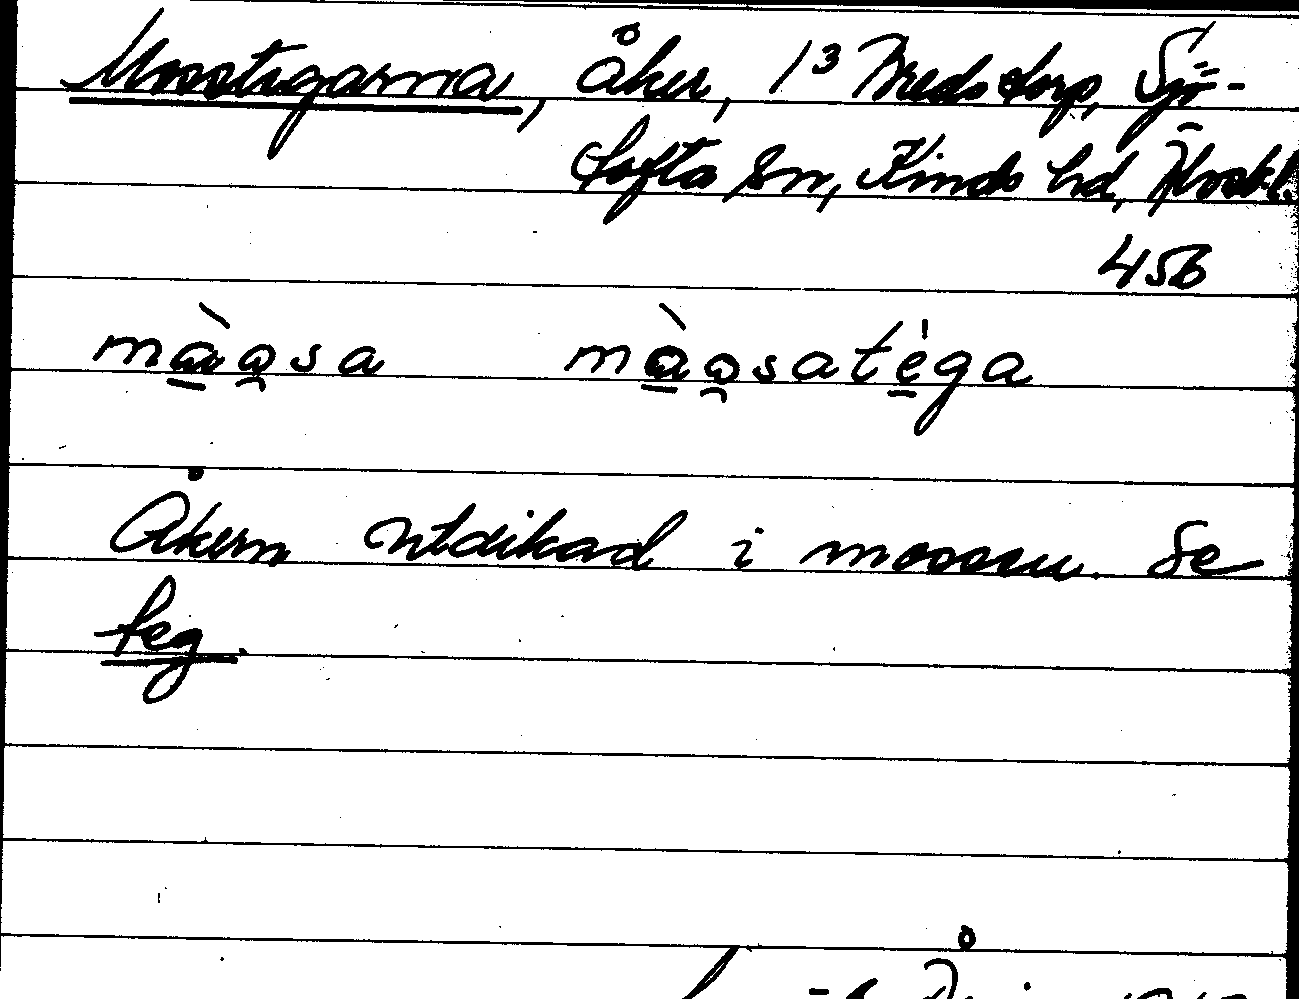 Mosstegarna, åker, 1³ Bredstorp, Sjö-
tofta sn, Kinds hd, Älvsb.l.
456
mȧo̯sa mȧo̯satėga
Åkern utdikad i mossen. Se
teg.